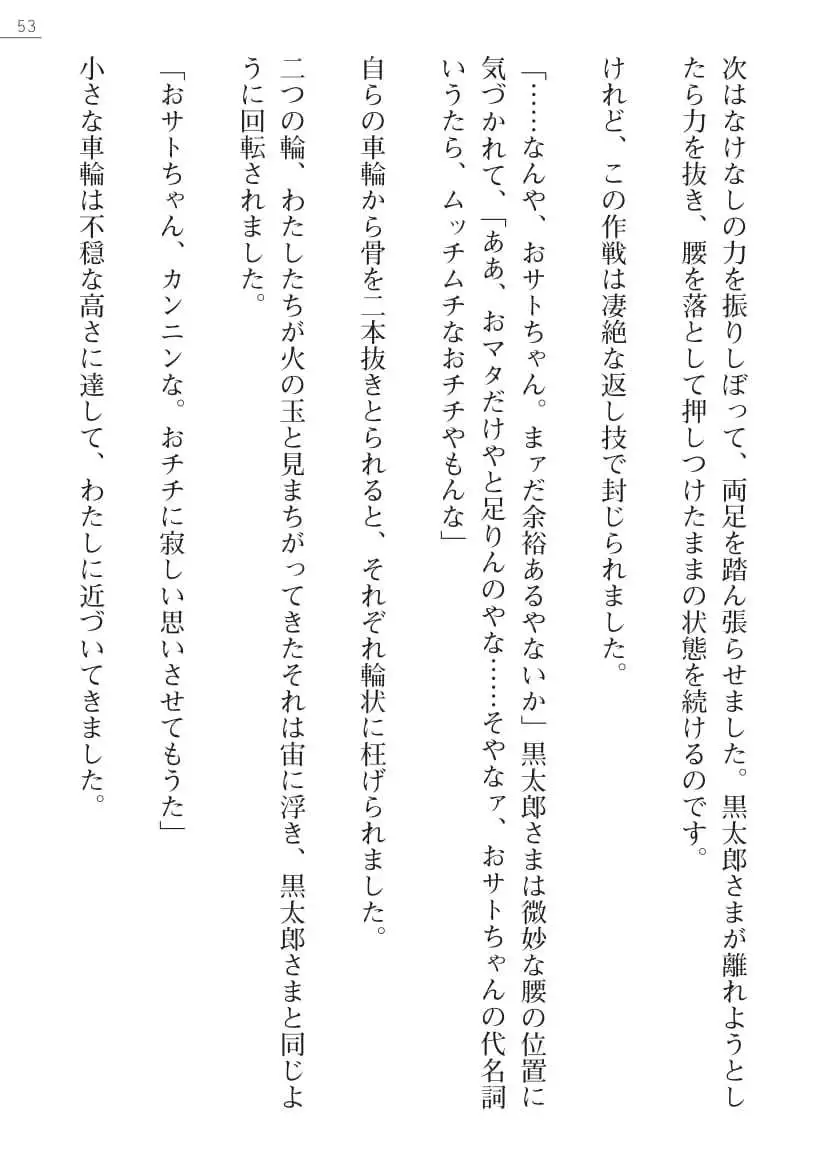 53
次はなけなしの力を振りしぼって、両足を踏ん張らせました。黒太郎さまが離れようとし
たら力を抜き、腰を落として押しつけたままの状態を続けるのです。
けれど、この作戦は凄絶な返し技で封じられました。
「……なんや、おサトちゃん。まァだ余裕あるやないか」黒太郎さまは微妙な腰の位置に
気づかれて、「ああ、おマタだけやと足りんのやな……そやなァ、おサトちゃんの代名詞
いうたら、ムッチムチなおチチやもんな」
自らの車輪から骨を二本抜きとられると、それぞれ輪状に枉げられました。
二つの輪、わたしたちが火の玉と見まちがってきたそれは宙に浮き、黒太郎さまと同じよ
うに回転されました。
「おサトちゃん、カンニンな。おチチに寂しい思いさせてもうた」
小さな車輪は不穏な高さに達して、わたしに近づいてきました。